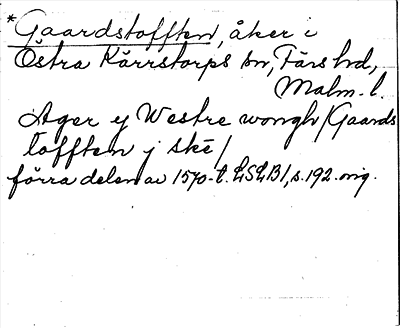 *Gaardstofften, åker i
Östra Kärrstorps sn, Färs hd,
Malm. l.
Ager ý Westre wongh/Gaards
tofften j ske/
förra delen av 1570-t. LSLB 1, s. 192. orig.